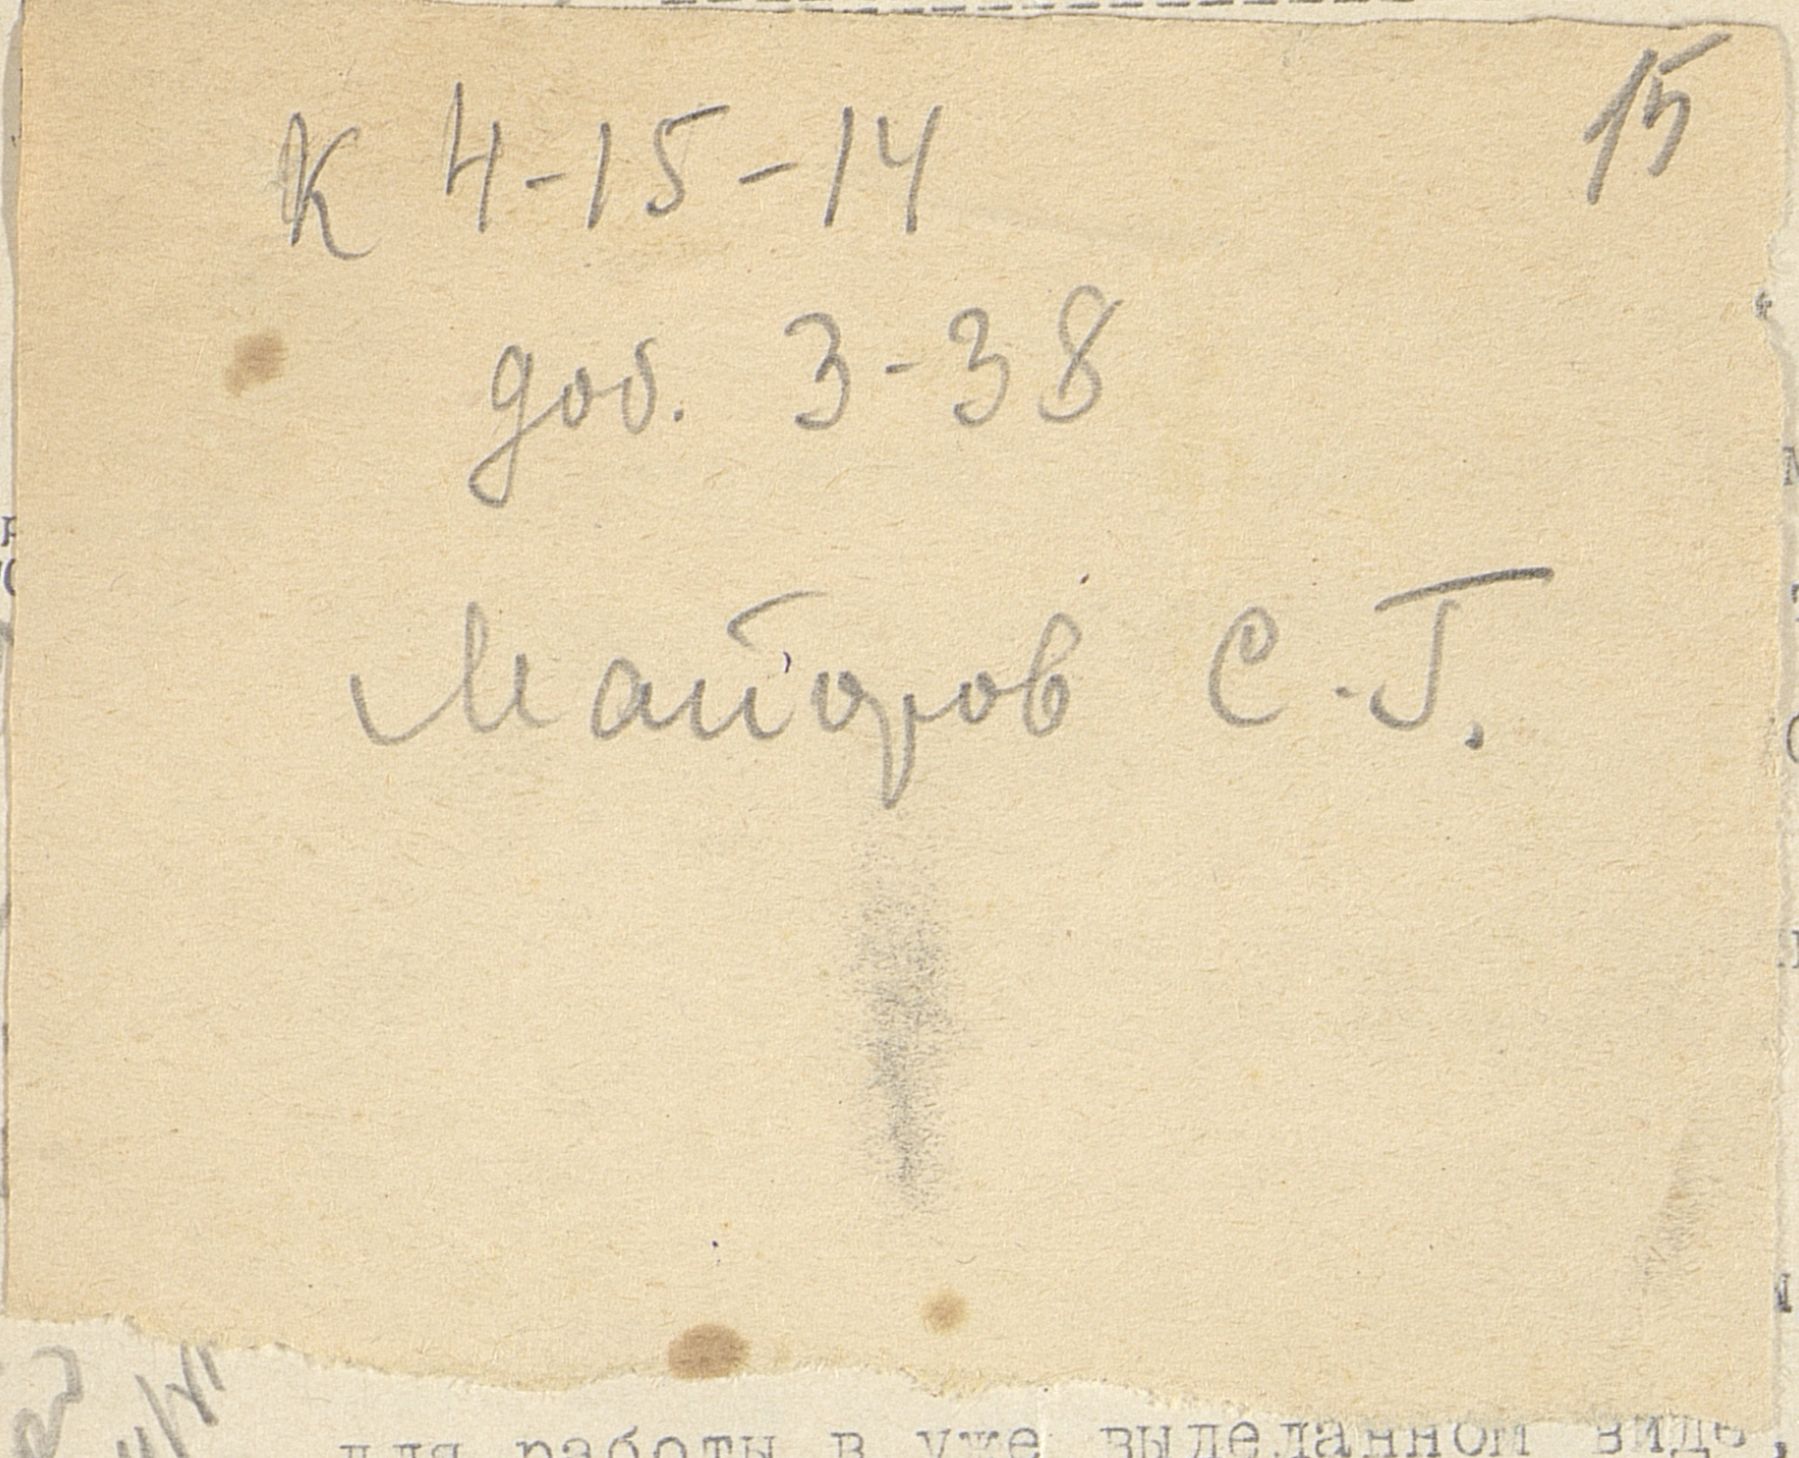 15
К 4-15-14
доб. 3-38
Майоров С.Г.
для работы в уже выделанном виде,